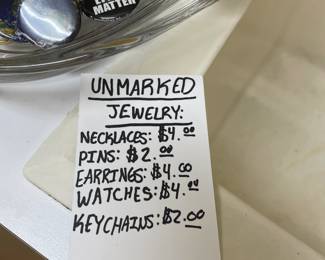 MATTER
UNMARKED
JEWELRY:
NECKLACES: $4.00
PINS: $2.00
EARRINGS: $4.00
WATCHES: $4.00
KEYCHAINS: $2.00